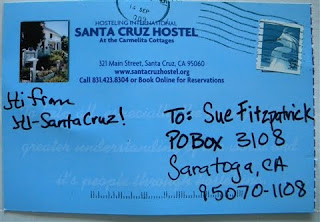 HOSTELING INTERNATIONAL
SANTA CRUZ HOSTEL
At the Carmelita Cottages
321 Main Street, Santa Cruz, CA 95060
www.santacruzhostel.org
Call 831.423.8304 or Book Online for Reservations
Hi from
HI-Santa Cruz!
To: Sue Fitzpatrick
PO Box 3108
Saratoga, CA
95070-1108